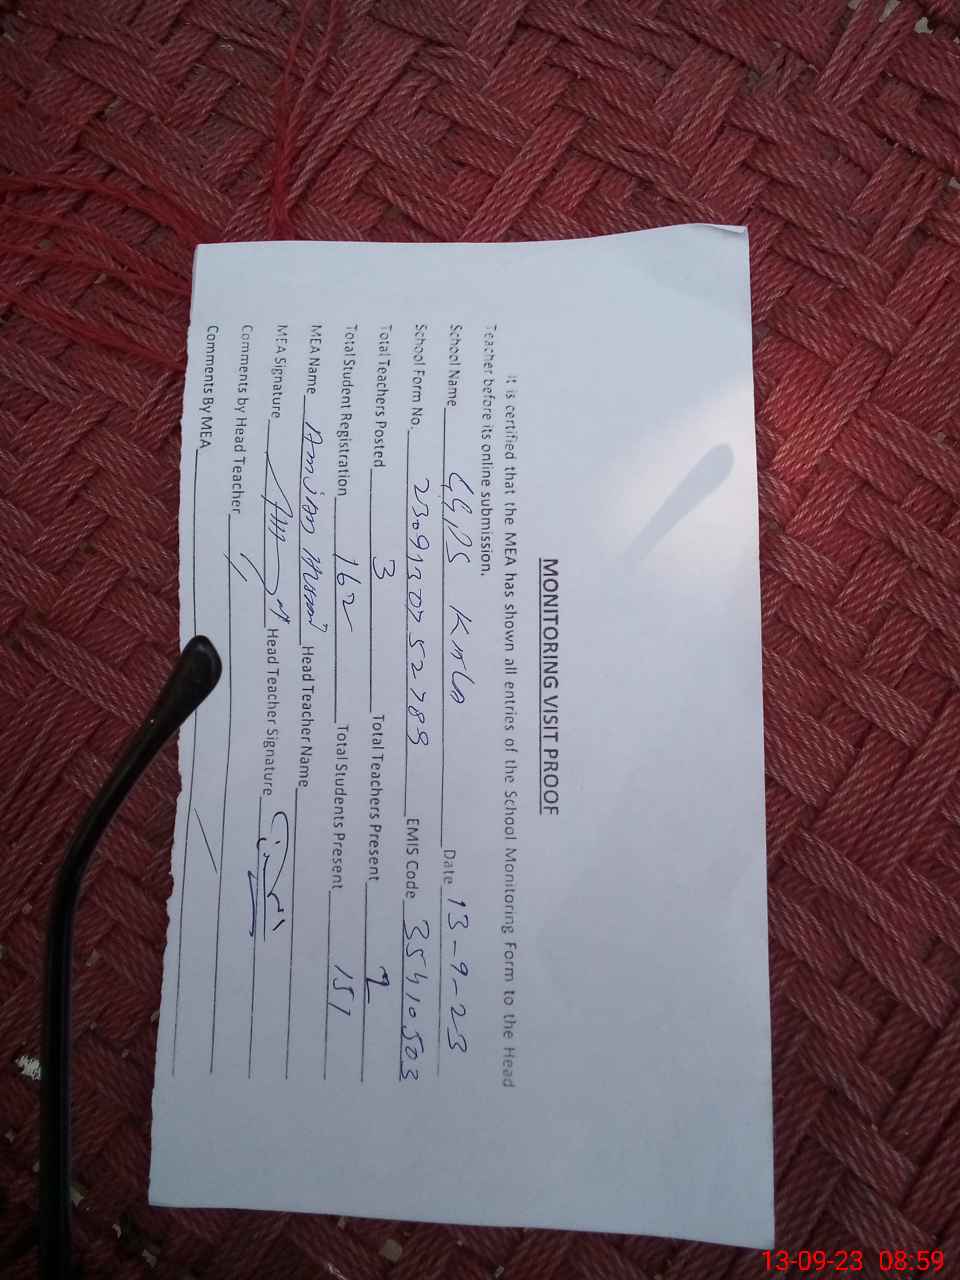 MONITORING VISIT PROOF
It is certified that the MEA has shown all entries of the School Monitoring Form to the Head
Teacher before its online submission.
School Name GGPS Date 13-9-23
School Form No. 2309130752789 EMIS Code 35410503
Total Teachers Posted 3 Total Teachers Present 2
Total Student Registration 162 Total Students Present 151
MEA Name Head Teacher Name
MEA Signature Head Teacher Signature
Comments by Head Teacher
Comments By MEA
13-09-23 08:59